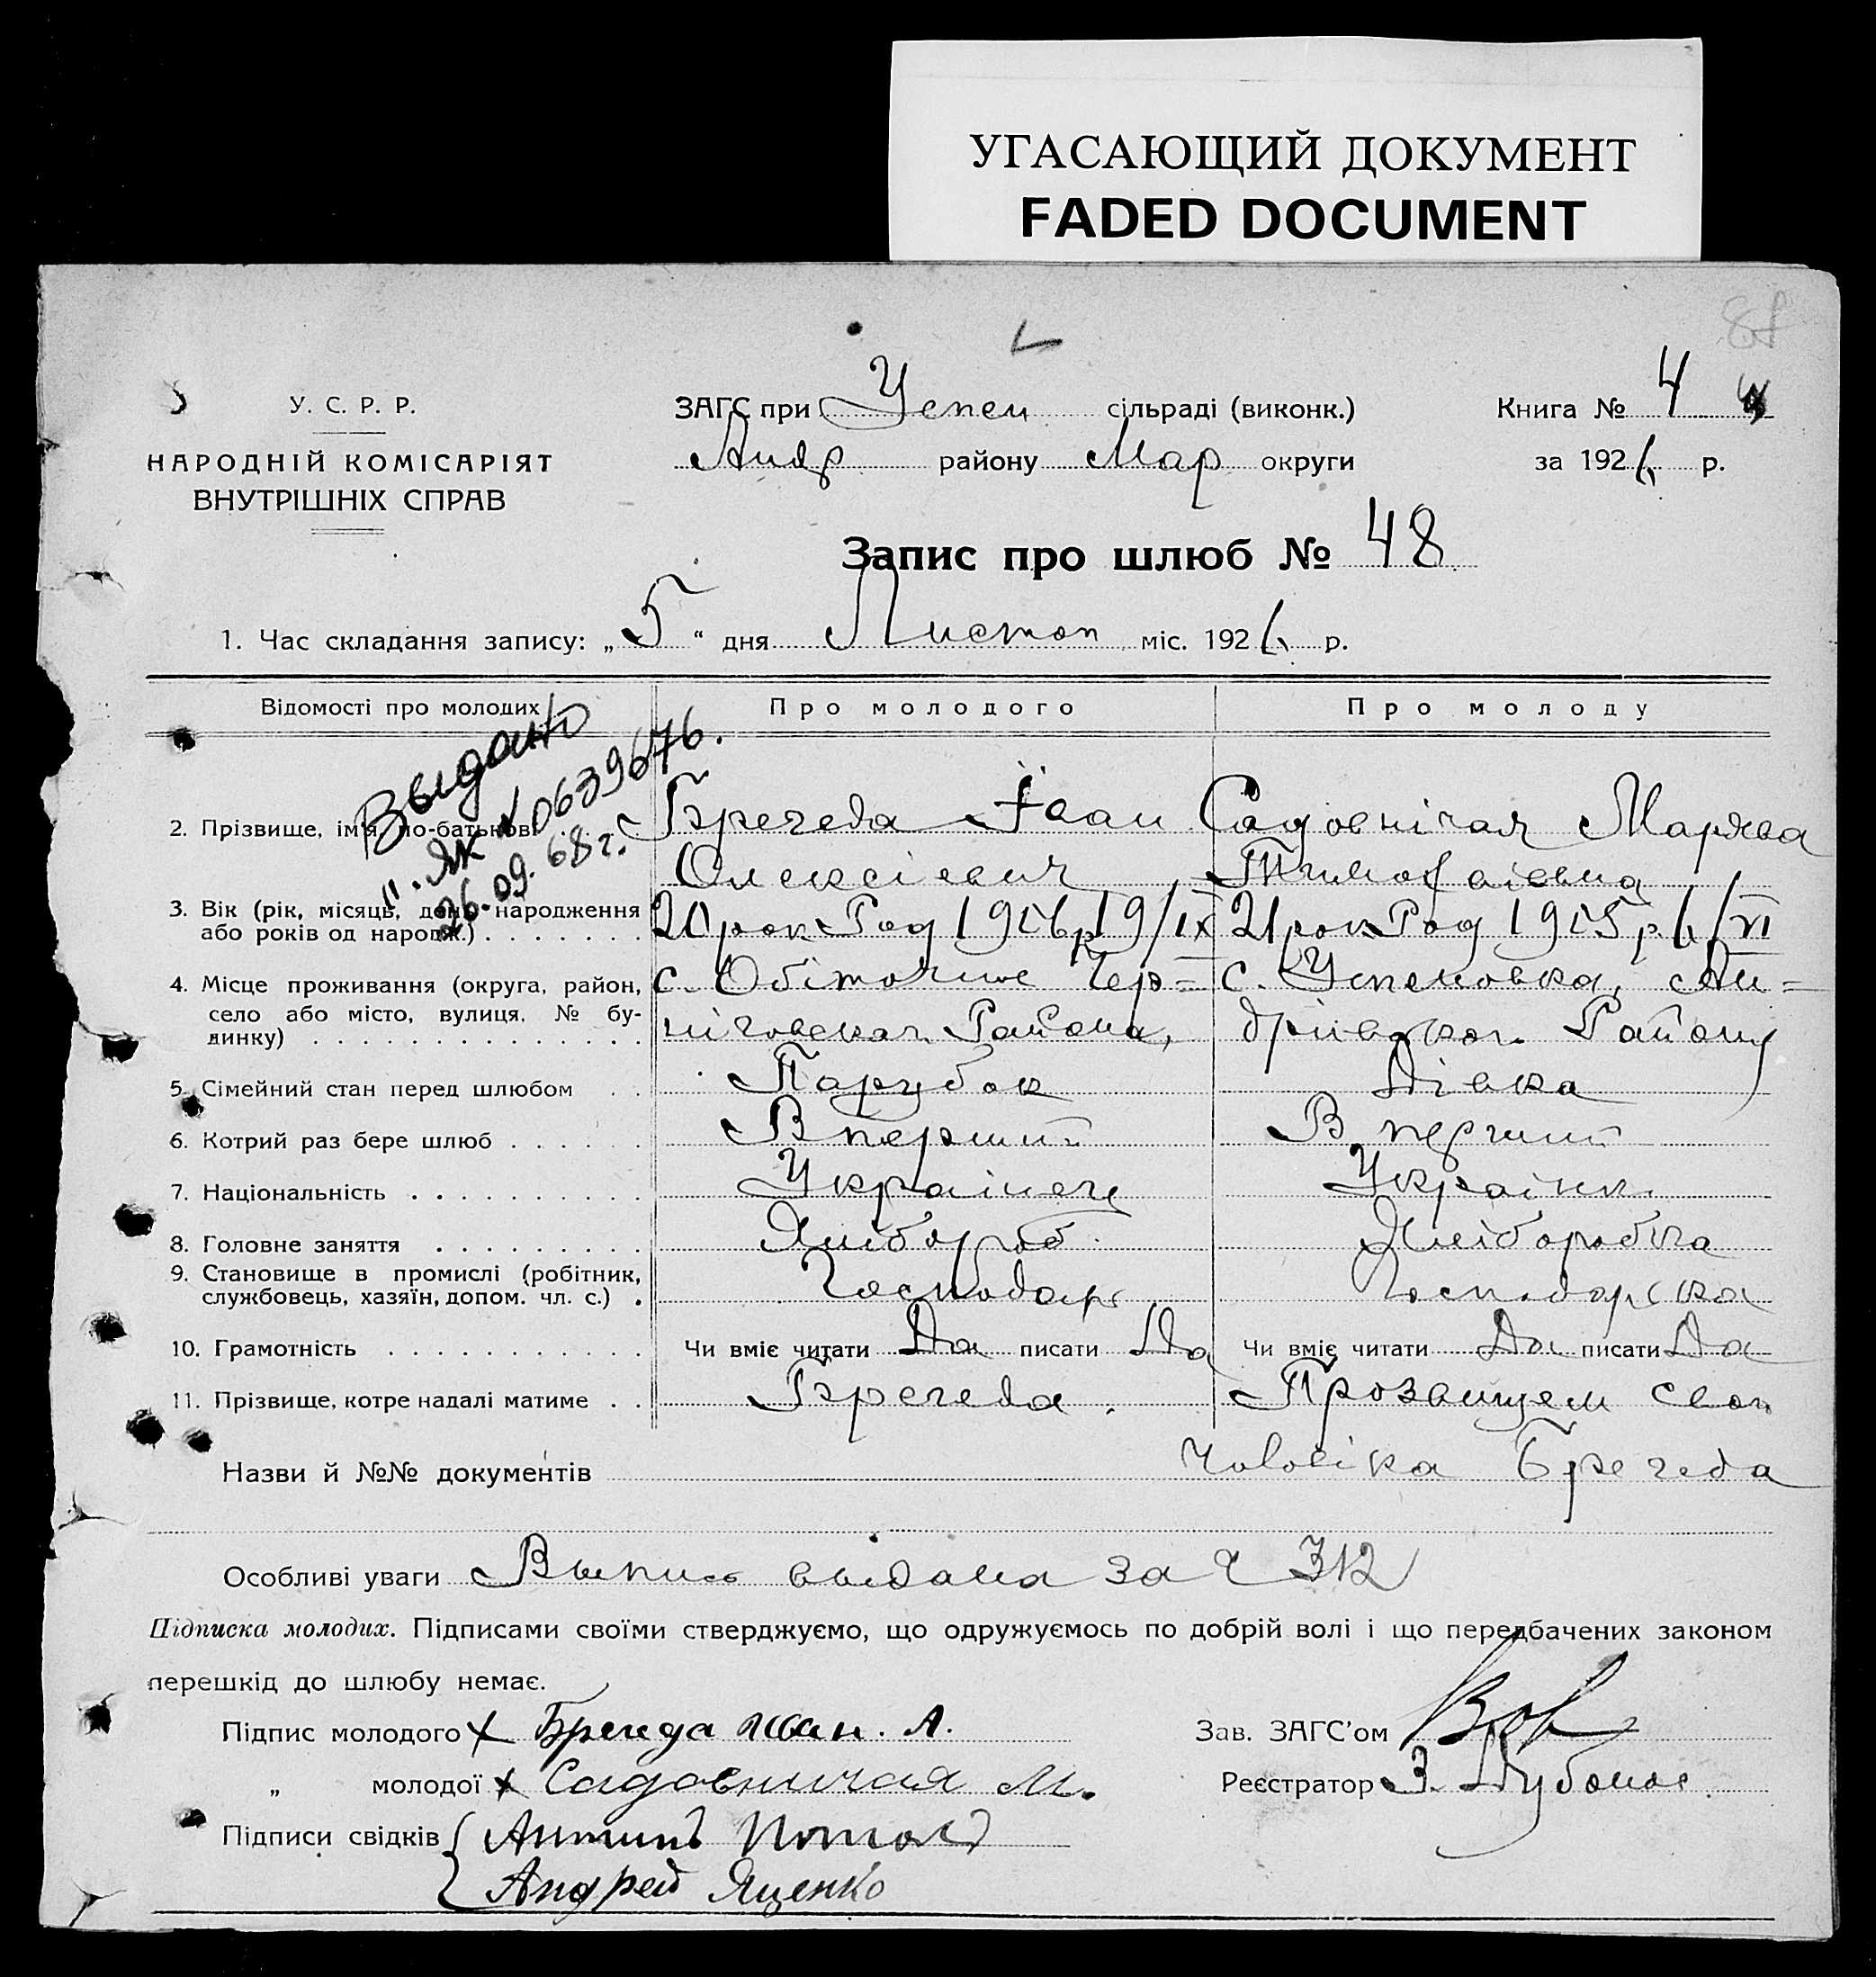 УГАСАЮЩИЙ ДОКУМЕНТ
FADED DOCUMENT
У. С. Р. Р.
НАРОДНІЙ КОМІСАРІЯТ
ВНУТРІШНІХ СПРАВ
ЗАГС при Успен сільраді (виконк.)
Андр району Мар округи
Книга № 4
за 1926 р.
Запис про шлюб № 48
1. Час складання запису: „5“ дня Листоп міс. 1926 р.
Відомості про молодих Про молодого Про молоду
Выдано
ЯК № 0639676.
26.09.68 г.
2. Прізвище, ім'я, по-батькові Бречеда Іван Садовнічая Марява
Олексієвич Тимофаієвна
3. Вік (рік, місяць, день народження 20 рок Род 1906 р 19/IX 21 рок Род 1905 р 6/VI
або років од народж.)
4. Місце проживання (округа, район, с. Обіточне Чер= с. Успеновка, Ан=
село або місто, вулиця, № бу- ніговског Района, дріївског Району
динку)
5. Сімейний стан перед шлюбом Парубок Дівка
6. Котрий раз бере шлюб Вперший Вперший
7. Національність Українец Українк
8. Головне заняття Хлібороб Хліборобка
9. Становище в промислі (робітник, Господарь Господарька
службовець, хазяїн, допом. чл. с.)
10. Грамотність Чи вміє читати Да писати Да Чи вміє читати Да писати Да
11. Прізвище, котре надалі матиме Бречеда. Прозвищем свог
чоловіка Бречеда
Назви й №№ документів
Особливі уваги Выпись выдана за Ч 312
Підписка молодих. Підписами своїми стверджуємо, що одружуємось по добрій волі і що передбачених законом
перешкід до шлюбу немає.
Підпис молодого Бречеда Иван. А.
„ молодої Садовничая М.
Зав. ЗАГС'ом
Реєстратор З.
Підписи свідків Антипъ
Андрей Яценко